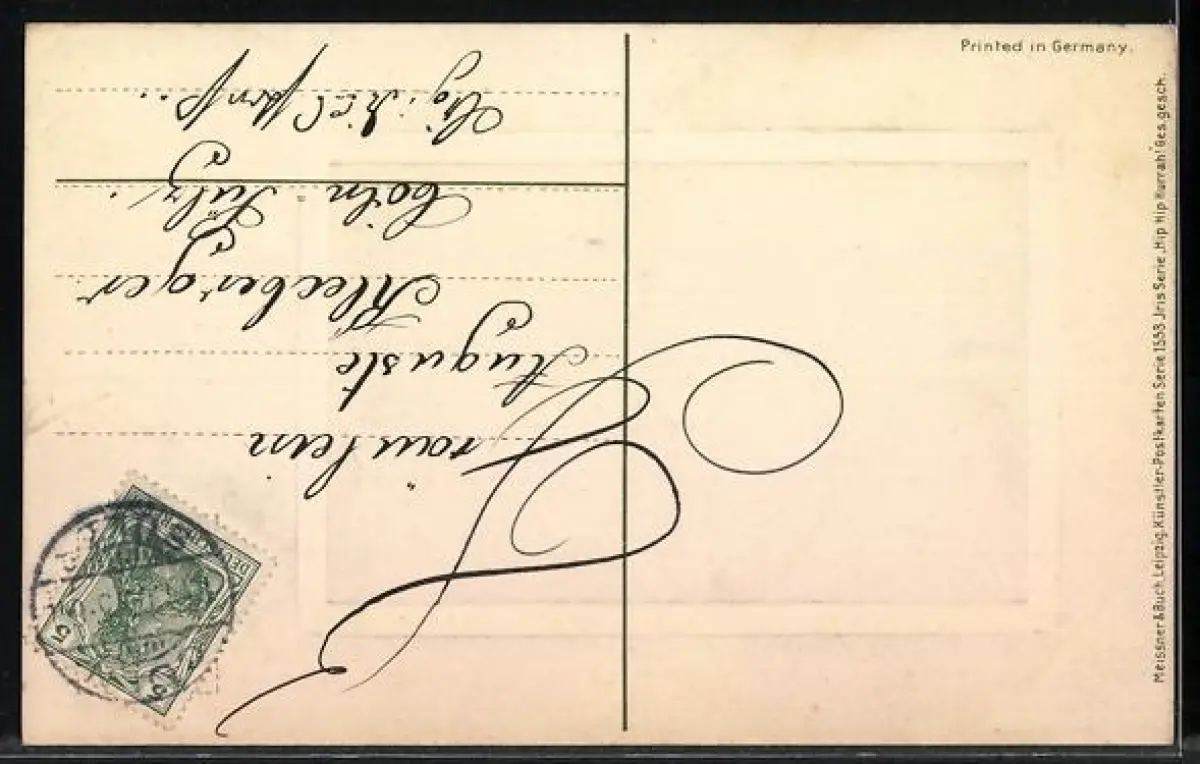 Printed in Germany.
Meissner & Buch, Leipzig, Künstler-Postkarten Serie 1553 „Iris Serie „Hip Hip Hurrah! Ges. gesch.
Fräulein
Auguste
Kleeberger
Cöln-Sülz.
5
5